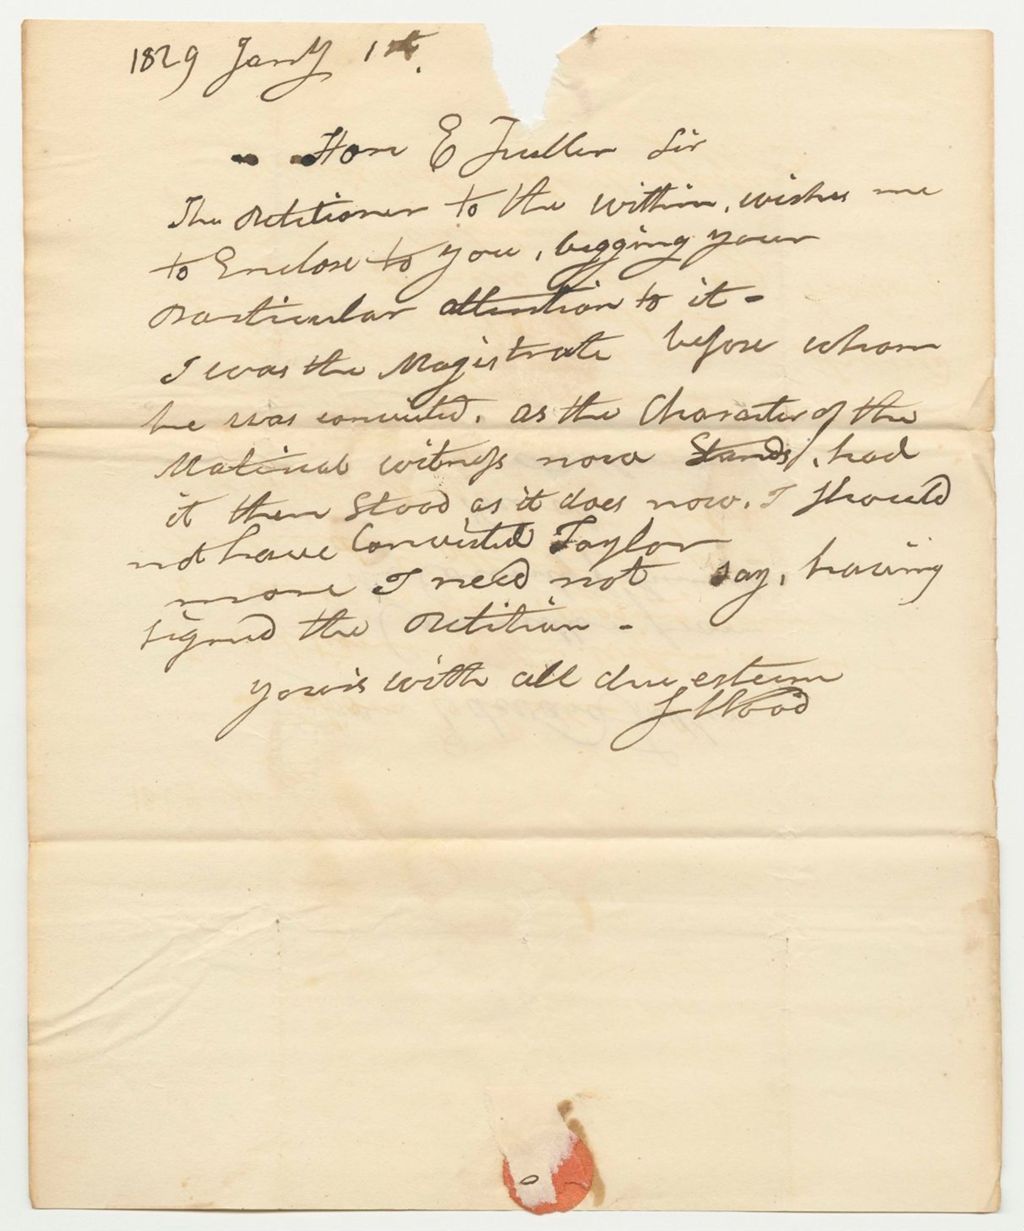 1829 Jany 1st.
Hon E Fuller Sir
The Petitioner to the within, wishes me
to Enclose to you, begging your
Particular attention to it -
I was the Magistrate before whom
he was convicted. as the Character of the
Material witness now Stands, had
it then Stood as it does now. I should
not have Convicted Taylor
more I need not say, having
signed the Petition -
yours with all due esteem
J Wood